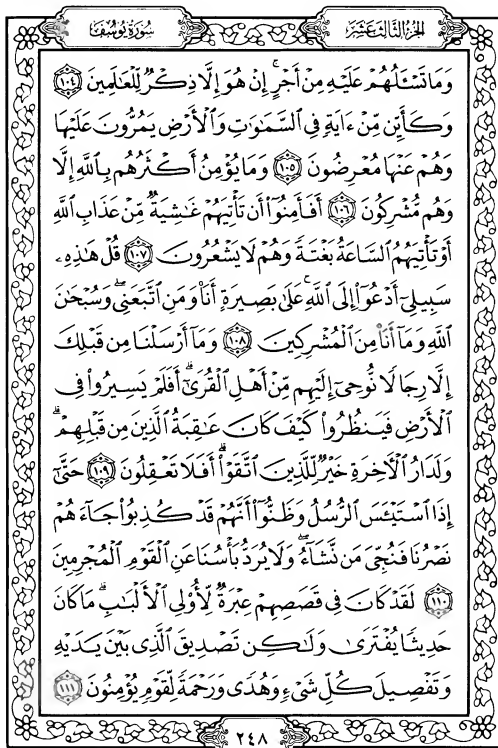 سُورَةُ يُوسُفَ
الجُزْءُ الثَّالِثَ عَشَرَ
وَمَا تَسْـَٔلُهُمْ عَلَيْهِ مِنْ أَجْرٍ ۚ إِنْ هُوَ إِلَّا ذِكْرٌ لِّلْعَٰلَمِينَ ١٠٤
وَكَأَيِّن مِّنْ ءَايَةٍ فِى ٱلسَّمَٰوَٰتِ وَٱلْأَرْضِ يَمُرُّونَ عَلَيْهَا
وَهُمْ عَنْهَا مُعْرِضُونَ ١٠٥ وَمَا يُؤْمِنُ أَكْثَرُهُم بِٱللَّهِ إِلَّا
وَهُم مُّشْرِكُونَ ١٠٦ أَفَأَمِنُوٓا۟ أَن تَأْتِيَهُمْ غَٰشِيَةٌ مِّنْ عَذَابِ ٱللَّهِ
أَوْ تَأْتِيَهُمُ ٱلسَّاعَةُ بَغْتَةً وَهُمْ لَا يَشْعُرُونَ ١٠٧ قُلْ هَٰذِهِۦ
سَبِيلِىٓ أَدْعُوٓا۟ إِلَى ٱللَّهِ ۚ عَلَىٰ بَصِيرَةٍ أَنَا۠ وَمَنِ ٱتَّبَعَنِى ۖ وَسُبْحَٰنَ
ٱللَّهِ وَمَآ أَنَا۠ مِنَ ٱلْمُشْرِكِينَ ١٠٨ وَمَآ أَرْسَلْنَا مِن قَبْلِكَ
إِلَّا رِجَالًا نُّوحِىٓ إِلَيْهِم مِّنْ أَهْلِ ٱلْقُرَىٰٓ ۗ أَفَلَمْ يَسِيرُوا۟ فِى
ٱلْأَرْضِ فَيَنظُرُوا۟ كَيْفَ كَانَ عَٰقِبَةُ ٱلَّذِينَ مِن قَبْلِهِمْ ۗ
وَلَدَارُ ٱلْءَاخِرَةِ خَيْرٌ لِّلَّذِينَ ٱتَّقَوْا۟ ۗ أَفَلَا تَعْقِلُونَ ١٠٩ حَتَّىٰٓ
إِذَا ٱسْتَيْـَٔسَ ٱلرُّسُلُ وَظَنُّوٓا۟ أَنَّهُمْ قَدْ كُذِبُوا۟ جَآءَهُمْ
نَصْرُنَا فَنُجِّىَ مَن نَّشَآءُ ۖ وَلَا يُرَدُّ بَأْسُنَا عَنِ ٱلْقَوْمِ ٱلْمُجْرِمِينَ
١١٠ لَقَدْ كَانَ فِى قَصَصِهِمْ عِبْرَةٌ لِّأُو۟لِى ٱلْأَلْبَٰبِ ۗ مَا كَانَ
حَدِيثًا يُفْتَرَىٰ وَلَٰكِن تَصْدِيقَ ٱلَّذِى بَيْنَ يَدَيْهِ
وَتَفْصِيلَ كُلِّ شَىْءٍ وَهُدًى وَرَحْمَةً لِّقَوْمٍ يُؤْمِنُونَ ١١١
٢٤٨